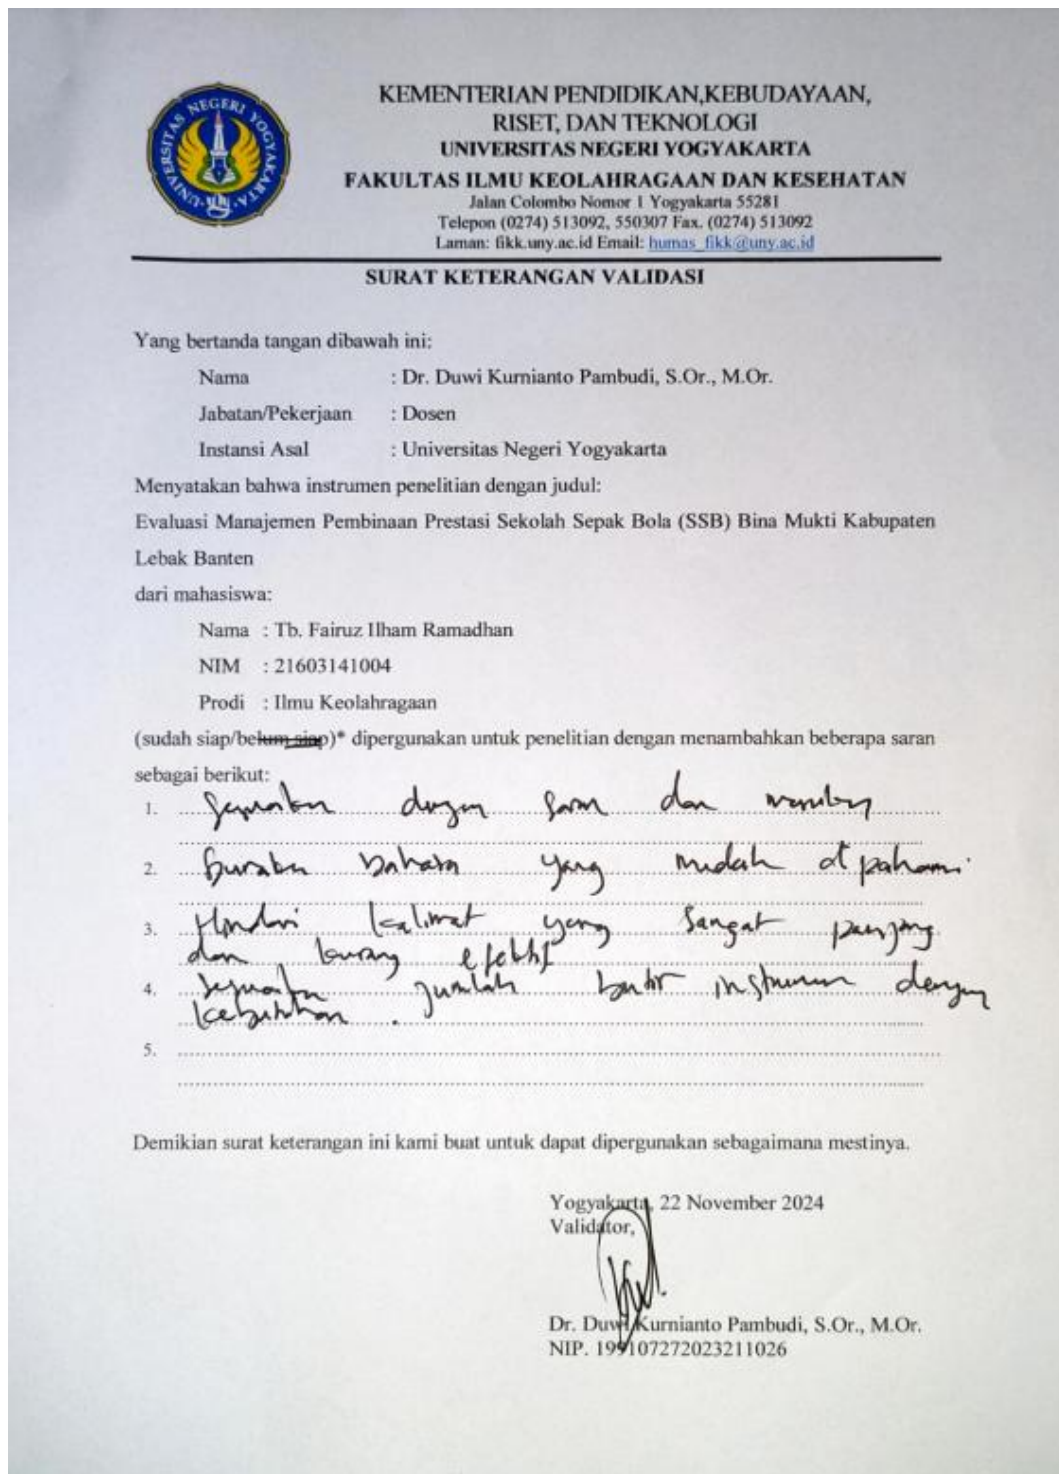 UNIVERSITAS NEGERI YOGYAKARTA
KEMENTERIAN PENDIDIKAN,KEBUDAYAAN,
RISET, DAN TEKNOLOGI
UNIVERSITAS NEGERI YOGYAKARTA
FAKULTAS ILMU KEOLAHRAGAAN DAN KESEHATAN
Jalan Colombo Nomor 1 Yogyakarta 55281
Telepon (0274) 513092, 550307 Fax. (0274) 513092
Laman: fikk.uny.ac.id Email: humas_fikk@uny.ac.id
SURAT KETERANGAN VALIDASI
Yang bertanda tangan dibawah ini:
Nama : Dr. Duwi Kurnianto Pambudi, S.Or., M.Or.
Jabatan/Pekerjaan : Dosen
Instansi Asal : Universitas Negeri Yogyakarta
Menyatakan bahwa instrumen penelitian dengan judul:
Evaluasi Manajemen Pembinaan Prestasi Sekolah Sepak Bola (SSB) Bina Mukti Kabupaten
Lebak Banten
dari mahasiswa:
Nama : Tb. Fairuz Ilham Ramadhan
NIM : 21603141004
Prodi : Ilmu Keolahragaan
(sudah siap/belum siap)* dipergunakan untuk penelitian dengan menambahkan beberapa saran
sebagai berikut:
1. dengan dan
2. bahasa yang mudah dipahami
3. Hindari kalimat yang sangat panjang
dan kurang efektif
4. Sesuaikan jumlah butir instrumen dengan
kebutuhan.
5.
Demikian surat keterangan ini kami buat untuk dapat dipergunakan sebagaimana mestinya.
Yogyakarta, 22 November 2024
Validator,
Dr. Duwi Kurnianto Pambudi, S.Or., M.Or.
NIP. 199107272023211026